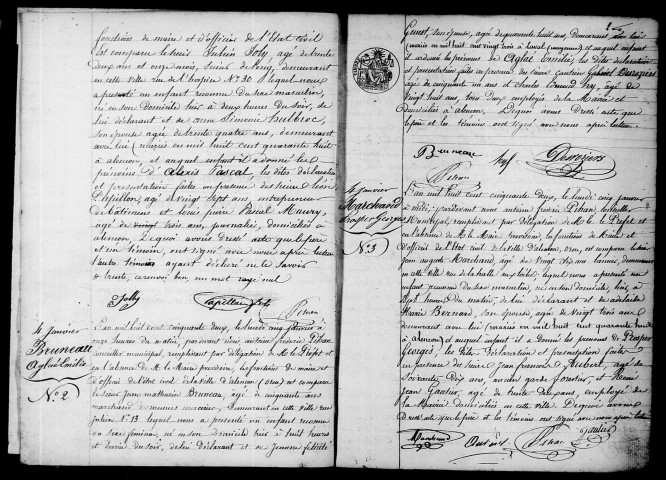 fonctions de maire et d'officier de l'Etat civil
est comparu le sieur Julien Joly agé de trente
deux ans et onze mois, scieur de long, demeurant
en cette ville rue de l'hospice N° 30 lequel nous
a présenté un enfant reconnu du sexe masculin,
né en son domicile hier à deux heures du soir, de
lui déclarant et de anne Simonie hulbroc,
son épouse agée de trente quatre ans, demeurant
avec lui (mariés en mil huit cent quarante huit
à alencon, et auquel enfant il a donné les
prénoms d'alexis Pascal, les dites déclaration
et présentation faites en présence des sieurs Léon
Papillon, agé de vingt sept ans, entrepreneur
de bâtimens et Louis Pascal Maury,
agé de vingt trois ans, journalier, domiciliés à
alencon, Dequoi avons dressé acte que le père
et un témoin, ont signé avec nous après lecture
l'autre témoin ayant déclaré ne le savoir
trente, un mot rayé nul
Jolly Papillon Pihan
4 janvier
Bruneau
Aglaé Emilie
N° 2
L'an mil huit cent cinquante deux, le lundi cinq janvier à
onze heures du matin, par devant nous antoine frédéric Pihan
conseiller municipal, remplissant par délégation de M. le Préfet et
en l'absence de M. le Maire provisoire, les fonctions de maire et
d'officier de l'état civil de la ville d'alencon (orne) est comparu
le sieur Jean mathurin Bruneau, agé de cinquante ans
marchand de menues merceries, demeurant en cette ville rue
Julien N° 13 lequel nous a présenté un enfant reconnu
du sexe féminin, né en son domicile hier à huit heures
et demie du soir, de lui déclarant et de Jeanne félicité
Genest, son épouse, agée de quarante huit ans, demeurant avec lui
(mariés en mil huit cent vingt trois à Laval (mayenne) et auquel enfant
il a donné les prénoms de Aglaé Emilie, les dites déclaration
et présentation faites en présence des sieurs Desroziers
agé de cinquante un ans et charles Edmond hy, agé de
vingt huit ans, tous deux employés de la Mairie et
domiciliés à alencon. Dequoi avons dressé acte que
le père et les témoins ont signé avec nous après lecture.
Bruneau hy Desroziers
Pihan
4 janvier
Marchand
Prosper Georges
N° 3
L'an mil huit cent cinquante deux, le lundi cinq janvier
à midi, pardevant nous antoine frédéric Pihan, conseiller
Municipal, remplissant par délégation de M. le Préfet et
en l'absence de M. le Maire provisoire, les fonctions de Maire et
d'officier de l'état civil de la ville d'alencon, orne, est comparu le sieur
jean auguste Marchand, agé de vingt six ans, demeurant
en cette ville rue de la halle aux toiles lequel nous a présenté un
enfant reconnu du sexe masculin, né en son domicile, hier à
sept heures du matin, de lui déclarant et de adelaïde
Marie Bernard, son épouse, agée de vingt trois ans
demeurant avec lui (mariés en mil huit cent quarante huit
à alencon) et auquel enfant il a donné les prénoms de Prosper
Georges, les dites déclaration et présentation faites
en présence des sieurs jean françois Aubert, agé de
soixante dix ans, ancien garde forestier, et
Jean Gautier, agé de trente deux ans, employé de
la Mairie domiciliés en cette ville. Dequoi avons
dressé acte que le père et les témoins ont signé avec nous après lecture
Marchand Aubert Pihan Gautier